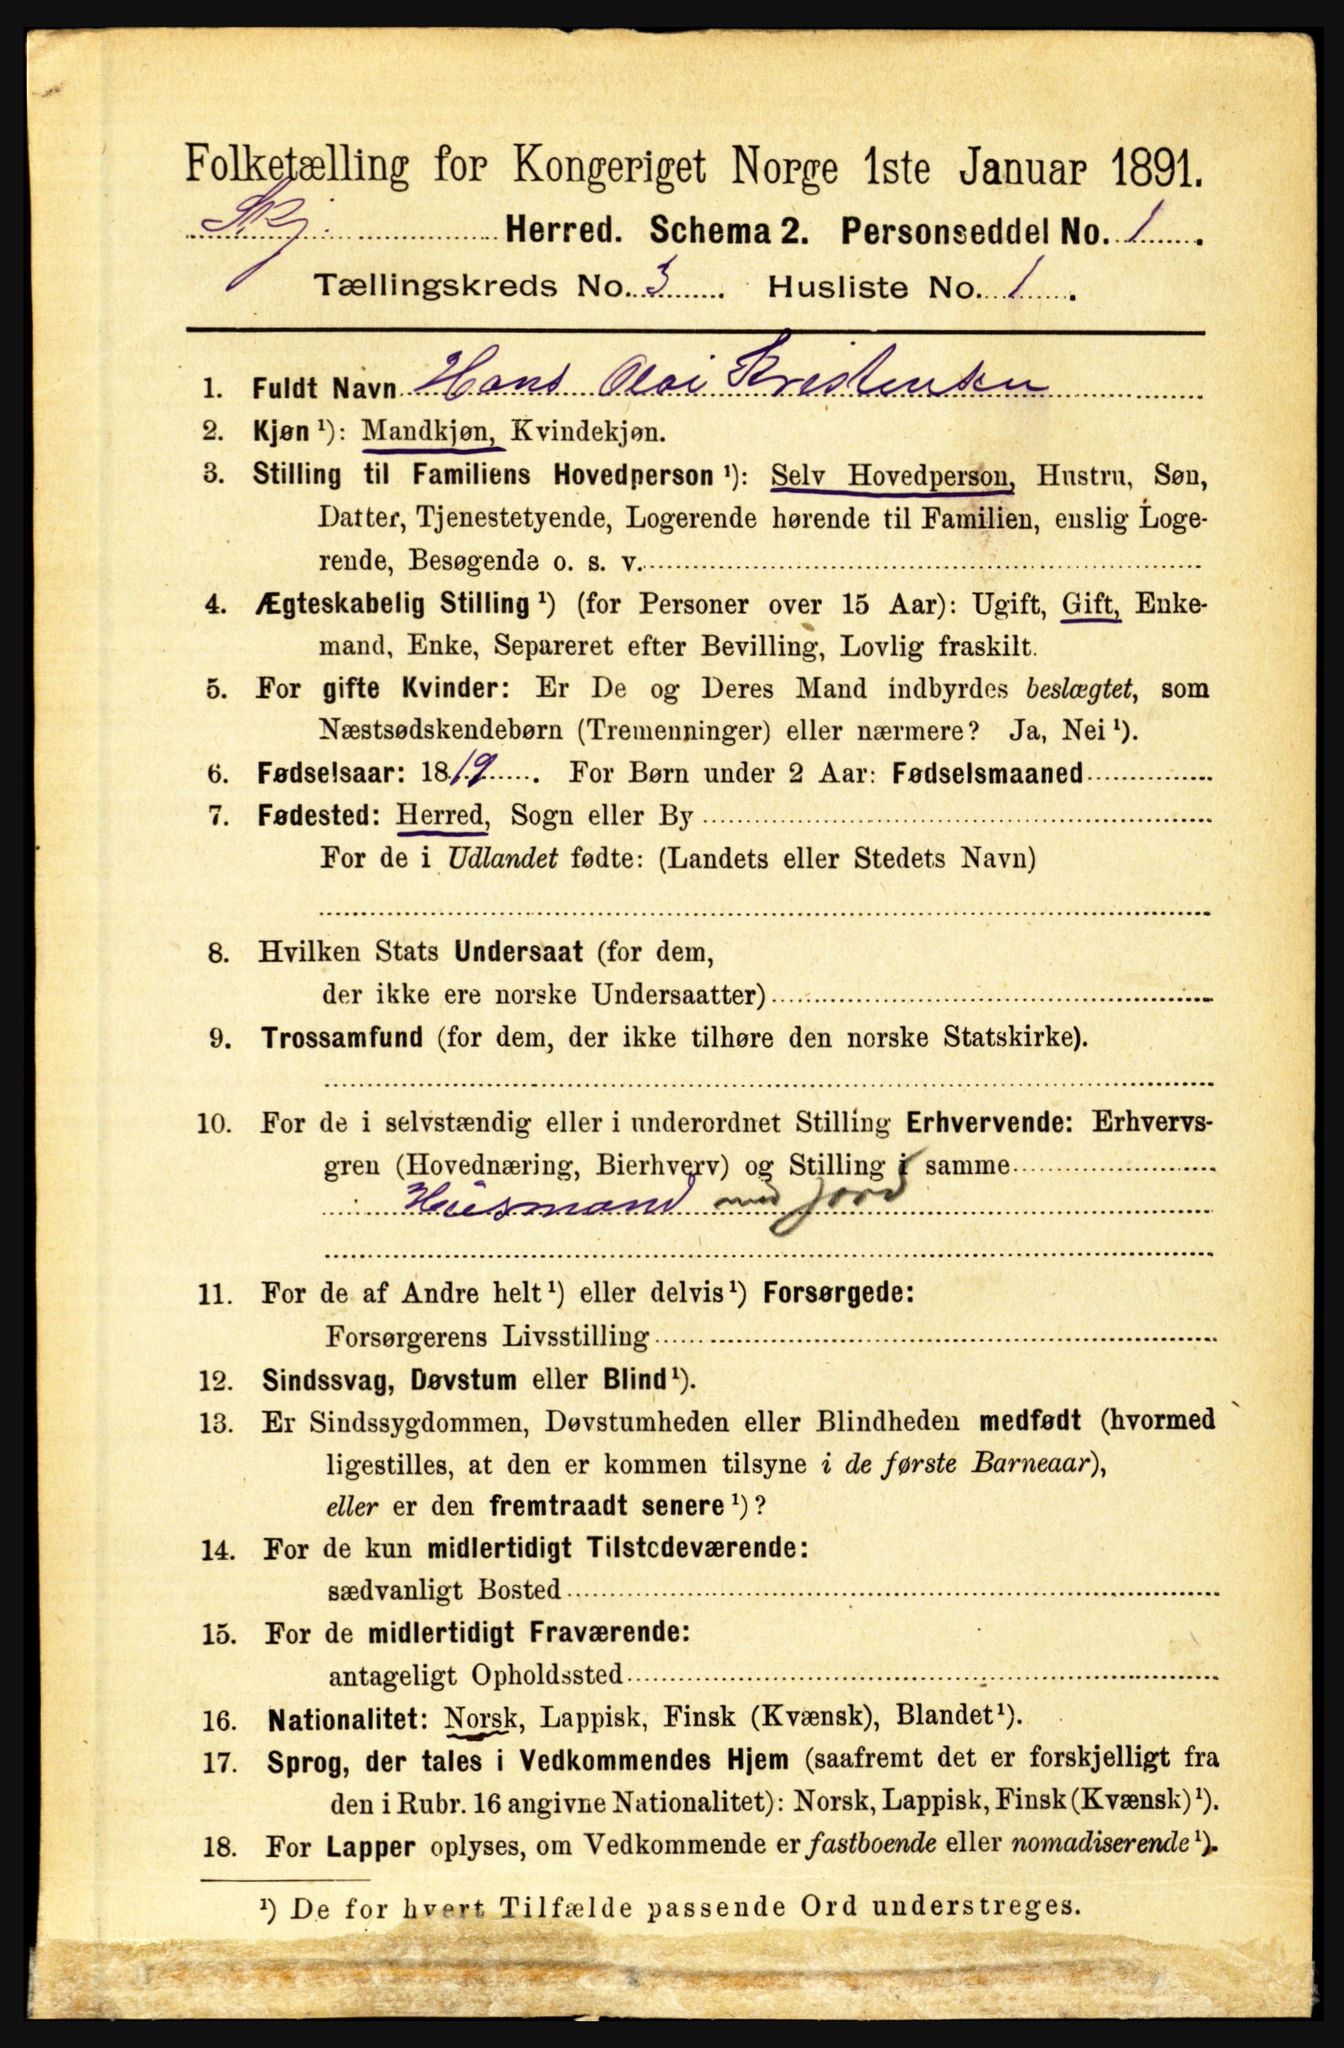 Folketælling for Kongeriget Norge 1ste Januar 1891.
Skj. Herred. Schema 2. Personseddel No. 1.
Tællingskreds No. 3. Husliste No. 1.
1. Fuldt Navn Hans Olai Kristensen
2. Kjøn ¹): Mandkjøn, Kvindekjøn.
3. Stilling til Familiens Hovedperson ¹): Selv Hovedperson, Hustru, Søn,
Datter, Tjenestetyende, Logerende hørende til Familien, enslig Loge-
rende, Besøgende o. s. v.
4. Ægteskabelig Stilling ¹) (for Personer over 15 Aar): Ugift, Gift, Enke-
mand, Enke, Separeret efter Bevilling, Lovlig fraskilt.
5. For gifte Kvinder: Er De og Deres Mand indbyrdes beslægtet, som
Næstsødskendebørn (Tremenninger) eller nærmere? Ja, Nei ¹).
6. Fødselsaar: 1819. For Børn under 2 Aar: Fødselsmaaned
7. Fødested: Herred, Sogn eller By
For de i Udlandet fødte: (Landets eller Stedets Navn)
8. Hvilken Stats Undersaat (for dem,
der ikke ere norske Undersaatter)
9. Trossamfund (for dem, der ikke tilhøre den norske Statskirke).
10. For de i selvstændig eller i underordnet Stilling Erhvervende: Erhvervs-
gren (Hovednæring, Bierhverv) og Stilling i samme
Husmand med Jord
11. For de af Andre helt ¹) eller delvis ¹) Forsørgede:
Forsørgerens Livsstilling
12. Sindssvag, Døvstum eller Blind ¹).
13. Er Sindssygdommen, Døvstumheden eller Blindheden medfødt (hvormed
ligestilles, at den er kommen tilsyne i de første Barneaar),
eller er den fremtraadt senere ¹)?
14. For de kun midlertidigt Tilstedeværende:
sædvanligt Bosted
15. For de midlertidigt Fraværende:
antageligt Opholdssted
16. Nationalitet: Norsk, Lappisk, Finsk (Kvænsk), Blandet ¹).
17. Sprog, der tales i Vedkommendes Hjem (saafremt det er forskjelligt fra
den i Rubr. 16 angivne Nationalitet): Norsk, Lappisk, Finsk (Kvænsk) ¹).
18. For Lapper oplyses, om Vedkommende er fastboende eller nomadiserende ¹).
¹) De for hvert Tilfælde passende Ord understreges.